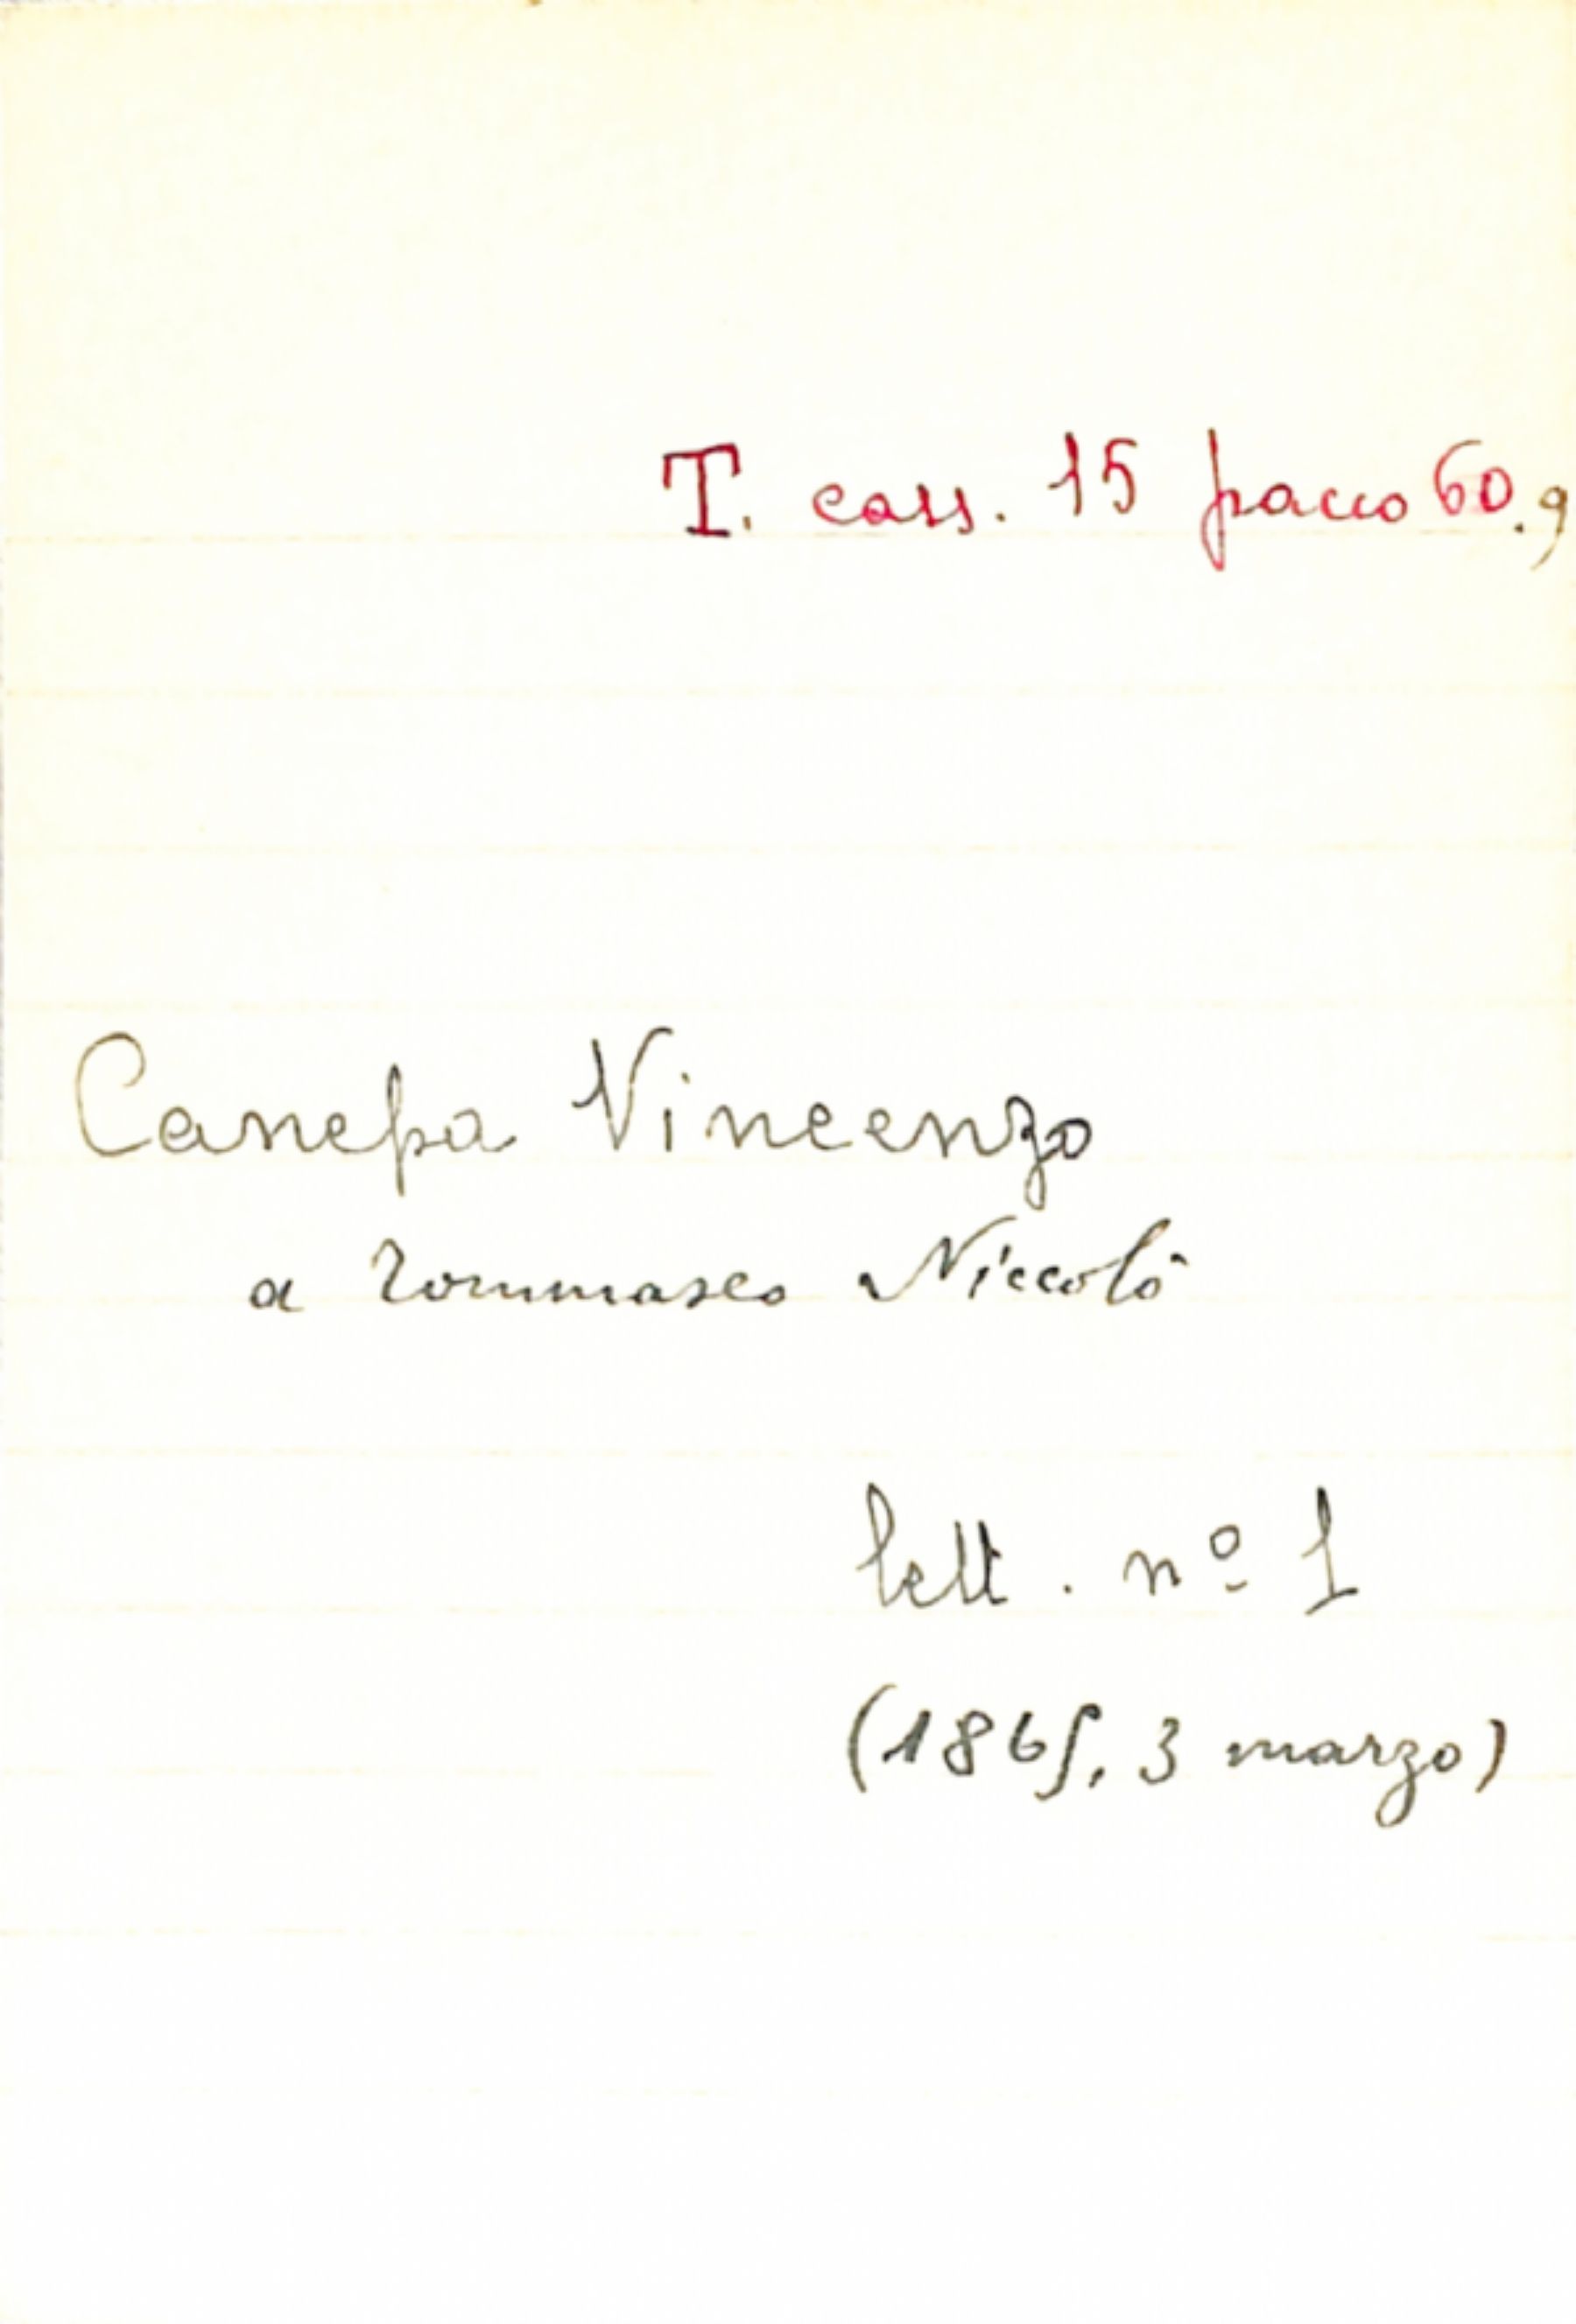 T. cass. 15 pacco 60.9
Canepa Vincenzo
a Tommaseo Niccolò
lett. nº 1
(1865, 3 marzo)